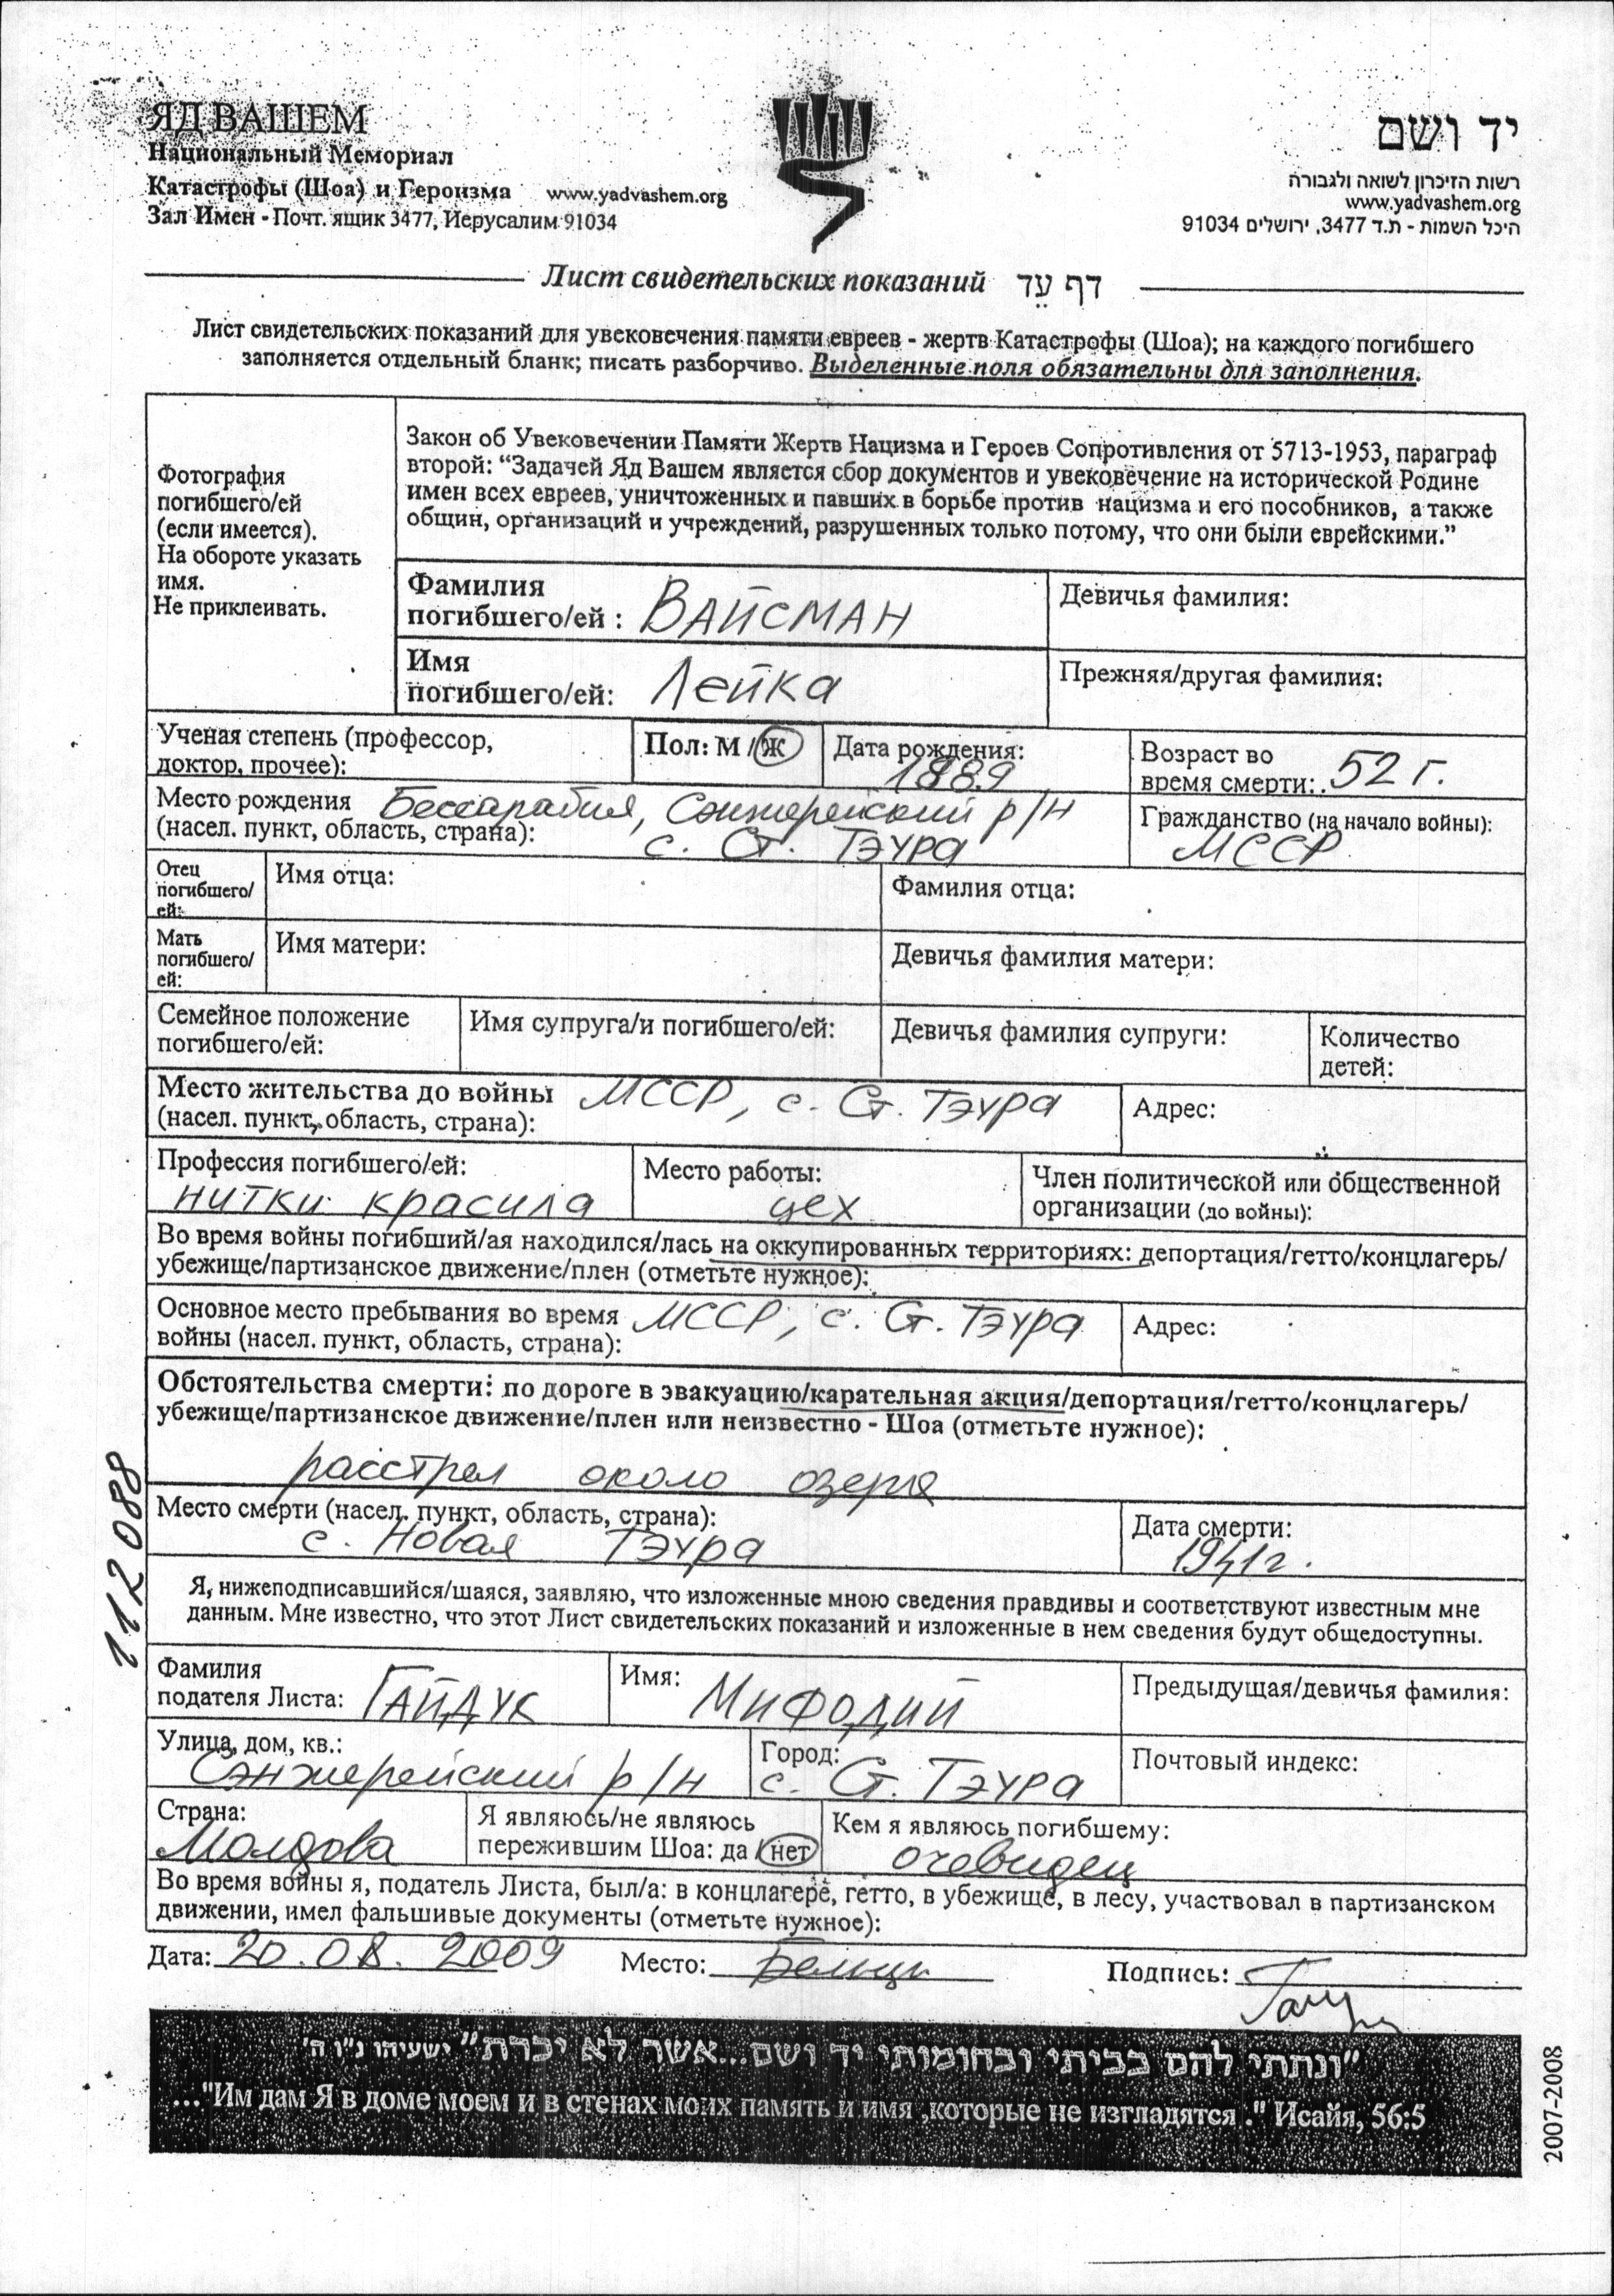 ЯД ВАШЕМ
Национальный Мемориал
Катастрофы (Шоа) и Героизма www.yadvashem.org
Зал Имен - Почт. ящик 3477, Иерусалим 91034
יד ושם
רשות הזיכרון לשואה ולגבורה
www.yadvashem.org
היכל השמות - ת.ד 3477, ירושלים 91034
Лист свидетельских показаний דף עֵד
Лист свидетельских показаний для увековечения памяти евреев - жертв Катастрофы (Шоа); на каждого погибшего
заполняется отдельный бланк; писать разборчиво. Выделенные поля обязательны для заполнения.
Фотография
погибшего/ей
(если имеется).
На обороте указать
имя.
Не приклеивать.
Закон об Увековечении Памяти Жертв Нацизма и Героев Сопротивления от 5713-1953, параграф
второй: “Задачей Яд Вашем является сбор документов и увековечение на исторической Родине
имен всех евреев, уничтоженных и павших в борьбе против нацизма и его пособников, а также
общин, организаций и учреждений, разрушенных только потому, что они были еврейскими.”
Фамилия
погибшего/ей : ВАЙСМАН
Девичья фамилия:
Имя
погибшего/ей: Лейка
Прежняя/другая фамилия:
Ученая степень (профессор,
доктор, прочее):
Пол: М / Ж
Дата рождения:
1889
Возраст во
время смерти: 52 г.
Место рождения Бессарабия, Сэнжерейский р/н
(насел. пункт, область, страна): с. Ст. Тэура
Гражданство (на начало войны):
МССР
Отец
погибшего/
ей:
Имя отца:
Фамилия отца:
Мать
погибшего/
ей:
Имя матери:
Девичья фамилия матери:
Семейное положение
погибшего/ей:
Имя супруга/и погибшего/ей:
Девичья фамилия супруги:
Количество
детей:
Место жительства до войны МССР, с. Ст. Тэура
(насел. пункт, область, страна):
Адрес:
Профессия погибшего/ей:
нитки красила
Место работы:
цех
Член политической или общественной
организации (до войны):
Во время войны погибший/ая находился/лась на оккупированных территориях: депортация/гетто/концлагерь/
убежище/партизанское движение/плен (отметьте нужное):
Основное место пребывания во время МССР, с. Ст. Тэура
войны (насел. пункт, область, страна):
Адрес:
Обстоятельства смерти: по дороге в эвакуацию/карательная акция/депортация/гетто/концлагерь/
убежище/партизанское движение/плен или неизвестно - Шоа (отметьте нужное):
расстрел около озера
Место смерти (насел. пункт, область, страна):
с. Новая Тэура
Дата смерти:
1941г.
112088
Я, нижеподписавшийся/шаяся, заявляю, что изложенные мною сведения правдивы и соответствуют известным мне
данным. Мне известно, что этот Лист свидетельских показаний и изложенные в нем сведения будут общедоступны.
Фамилия
подателя Листа: ГАЙДУК
Имя: Мифодий
Предыдущая/девичья фамилия:
Улица, дом, кв.:
Сэнжерейский р/н
Город:
с. Ст. Тэура
Почтовый индекс:
Страна:
Молдова
Я являюсь/не являюсь
пережившим Шоа: да / нет
Кем я являюсь погибшему:
очевидец
Во время войны я, податель Листа, был/а: в концлагере, гетто, в убежище, в лесу, участвовал в партизанском
движении, имел фальшивые документы (отметьте нужное):
Дата: 20.08.2009 Место: Бельцы Подпись:
"ונתתי להם בביתי ובחומותי יד ושם...אשר לא יכרת" ישעיהו נ"ו ה'
..."Им дам Я в доме моем и в стенах моих память и имя ,которые не изгладятся ." Исайя, 56:5
2007-2008